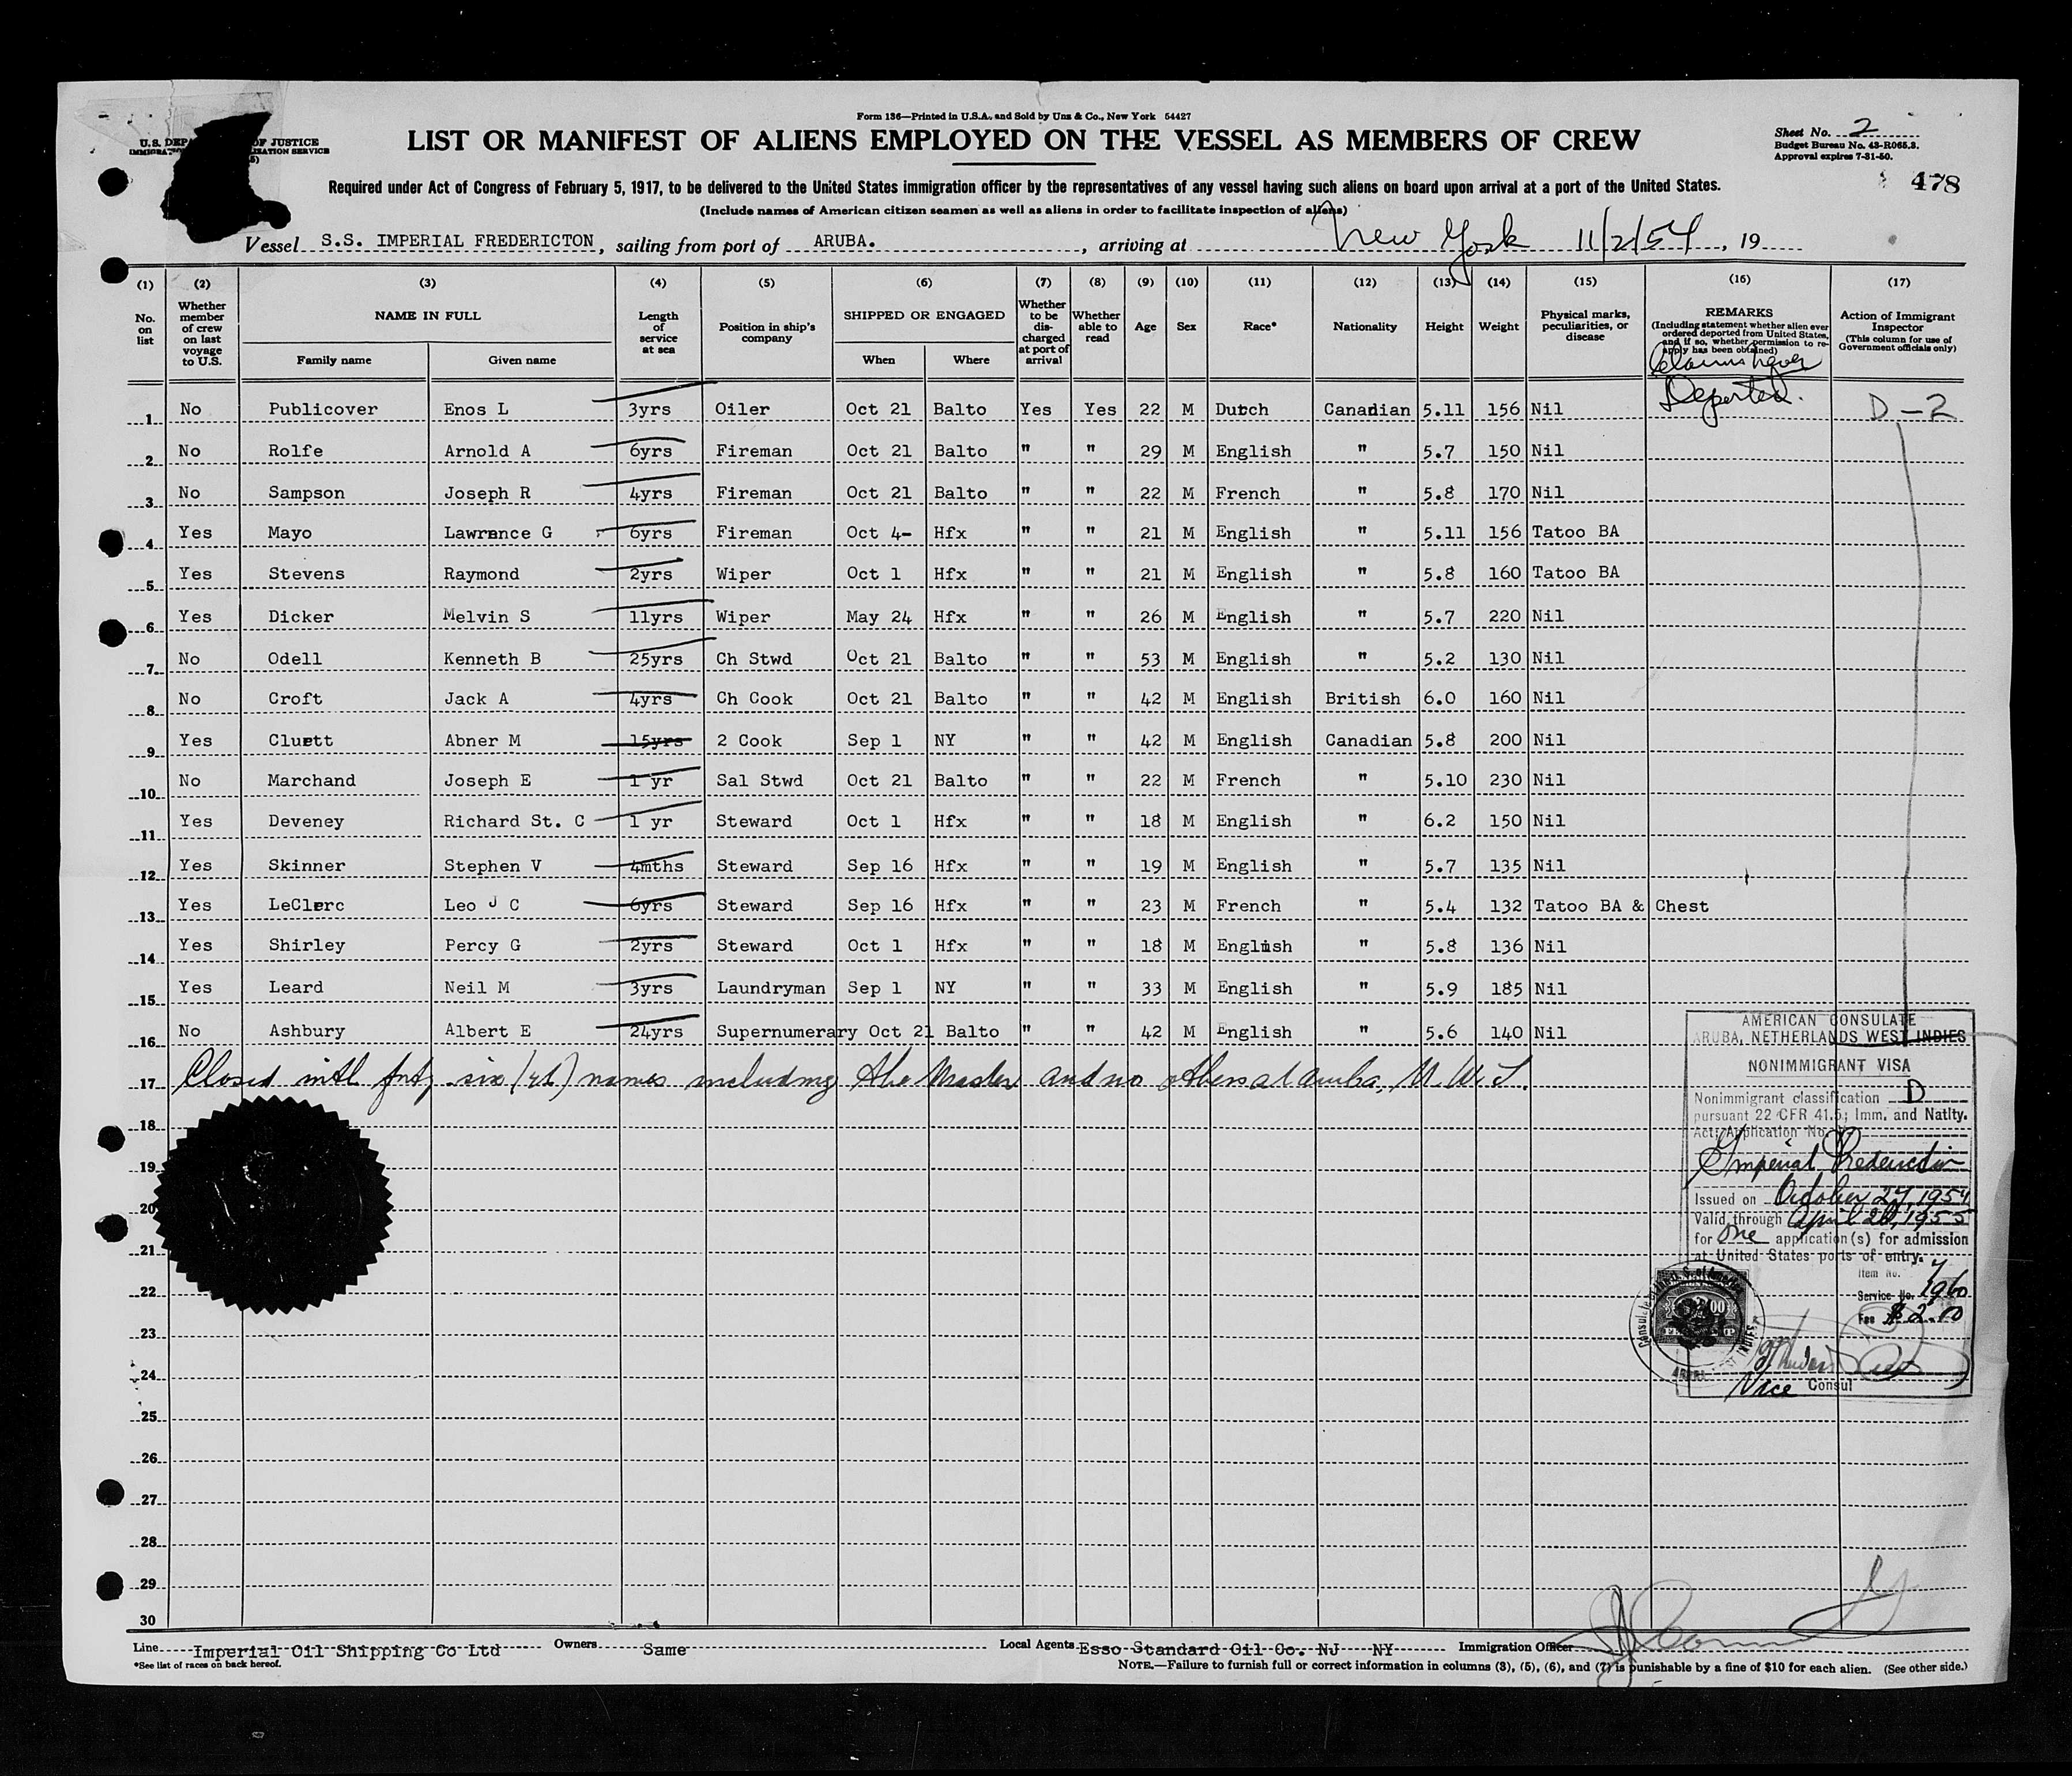 Form 136—Printed in U.S.A. and Sold by Unz & Co., New York 54427
U.S. DEPA OF JUSTICE
IMMIGRA IZATION SERVICE
LIST OR MANIFEST OF ALIENS EMPLOYED ON THE VESSEL AS MEMBERS OF CREW
Sheet No. 2
Budget Bureau No. 43-R065.3.
Approval expires 7-31-50.
478
Required under Act of Congress of February 5, 1917, to be delivered to the United States immigration officer by the representatives of any vessel having such aliens on board upon arrival at a port of the United States.
(Include names of American citizen seamen as well as aliens in order to facilitate inspection of aliens)
Vessel S.S. IMPERIAL FREDERICTON, sailing from port of ARUBA., arriving at New York 11/2/54, 19
(1) (2) (3) (4) (5) (6) (7) (8) (9) (10) (11) (12) (13) (14) (15) (16) (17)
No. on list
Whether member of crew on last voyage to U.S.
NAME IN FULL
Family name Given name
Length of service at sea
Position in ship's company
SHIPPED OR ENGAGED
When Where
Whether to be discharged at port of arrival
Whether able to read
Age
Sex
Race*
Nationality
Height
Weight
Physical marks, peculiarities, or disease
REMARKS
(Including statement whether alien ever ordered deported from United States, and if so, whether permission to re-apply has been obtained)
Action of Immigrant Inspector
(This column for use of Government officials only)
Claims never
Deported.
1 No Publicover Enos L 3yrs Oiler Oct 21 Balto Yes Yes 22 M Dutch Canadian 5.11 156 Nil D-2
2 No Rolfe Arnold A 6yrs Fireman Oct 21 Balto " " 29 M English " 5.7 150 Nil
3 No Sampson Joseph R 4yrs Fireman Oct 21 Balto " " 22 M French " 5.8 170 Nil
4 Yes Mayo Lawrence G 6yrs Fireman Oct 4- Hfx " " 21 M English " 5.11 156 Tatoo BA
5 Yes Stevens Raymond 2yrs Wiper Oct 1 Hfx " " 21 M English " 5.8 160 Tatoo BA
6 Yes Dicker Melvin S 11yrs Wiper May 24 Hfx " " 26 M English " 5.7 220 Nil
7 No Odell Kenneth B 25yrs Ch Stwd Oct 21 Balto " " 53 M English " 5.2 130 Nil
8 No Croft Jack A 4yrs Ch Cook Oct 21 Balto " " 42 M English British 6.0 160 Nil
9 Yes Cluett Abner M 15yrs 2 Cook Sep 1 NY " " 42 M English Canadian 5.8 200 Nil
10 No Marchand Joseph E 1 yr Sal Stwd Oct 21 Balto " " 22 M French " 5.10 230 Nil
11 Yes Deveney Richard St. C 1 yr Steward Oct 1 Hfx " " 18 M English " 6.2 150 Nil
12 Yes Skinner Stephen V 4mths Steward Sep 16 Hfx " " 19 M English " 5.7 135 Nil
13 Yes LeClerc Leo J C 6yrs Steward Sep 16 Hfx " " 23 M French " 5.4 132 Tatoo BA & Chest
14 Yes Shirley Percy G 2yrs Steward Oct 1 Hfx " " 18 M English " 5.8 136 Nil
15 Yes Leard Neil M 3yrs Laundryman Sep 1 NY " " 33 M English " 5.9 185 Nil
16 No Ashbury Albert E 24yrs Supernumerary Oct 21 Balto " " 42 M English " 5.6 140 Nil
17 Closed with forty six (46) names including the Master and no others at Aruba, N.W.I.
18
19
20
21
22
23
24
25
26
27
28
29
30
AMERICAN CONSULATE
ARUBA, NETHERLANDS WEST INDIES
NONIMMIGRANT VISA
Nonimmigrant classification D
pursuant 22 CFR 41.5; Imm. and Natlty.
Act; Application No.
Imperial Fredericton
Issued on October 27, 1954
Valid through April 26, 1955
for One application(s) for admission
at United States ports of entry.
Item No. 7
Service No. 1960
Fee $2.00
Vice Consul
Line Imperial Oil Shipping Co Ltd Owners Same Local Agents Esso Standard Oil Co. NJ NY Immigration Officer
*See list of races on back hereof.
NOTE.—Failure to furnish full or correct information in columns (3), (5), (6), and (7) is punishable by a fine of $10 for each alien. (See other side.)